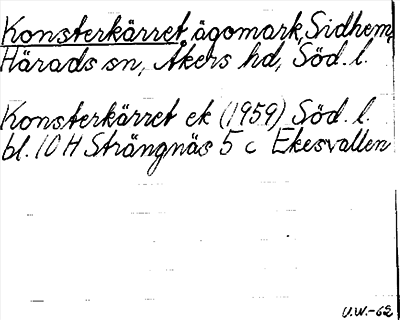 Konsterkärret, ägomark, Sidhem,
Härads sn, Åkers hd, Söd. l.
Konsterkärret ek (1959) Söd. l.
bl. 10 H Strängnäs 5 c Ekesvallen
U.W.-62